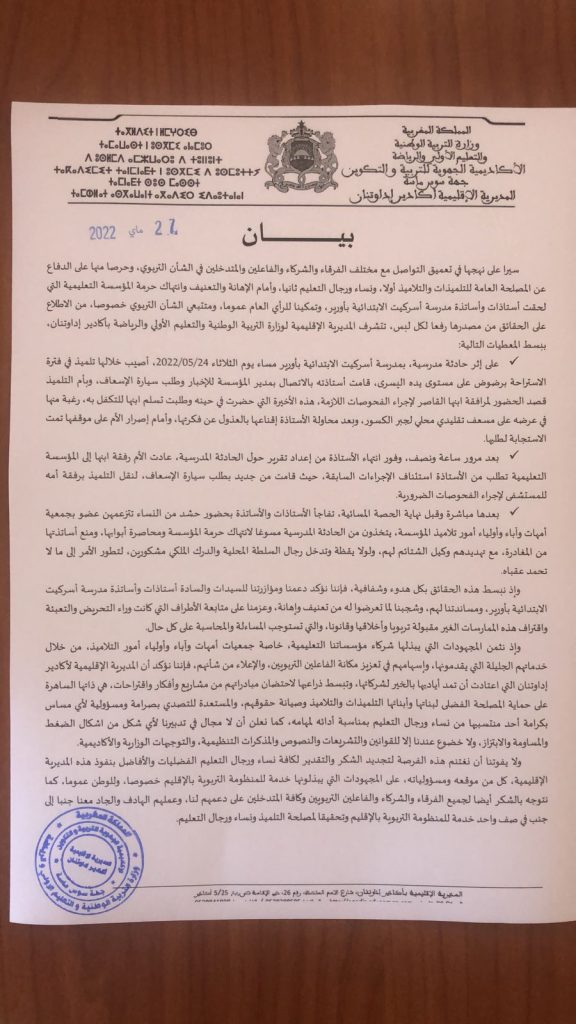 المملكة المغربية
وزارة التربية الوطنية
والتعليم الأولي والرياضة
الأكاديمية الجهوية للتربية والتكوين
جهة سوس ماسة
المديرية الإقليمية أكادير إداوتنان
27 ماي 2022
بيـــــــان
سيرا على نهجها في تعميق التواصل مع مختلف الفرقاء والشركاء والفاعلين والمتدخلين في الشأن التربوي، وحرصا منها على الدفاع
عن المصلحة العامة للتلميذات والتلاميذ أولا، ونساء ورجال التعليم ثانيا، وأمام الإهانة والتعنيف وانتهاك حرمة المؤسسة التعليمية التي
لحقت أستاذات وأساتذة مدرسة أسركيت الابتدائية بأورير، وتمكينا للرأي العام عموما، ومتتبعي الشأن التربوي خصوصا، من الاطلاع
على الحقائق من مصدرها رفعا لكل لبس، تتشرف المديرية الإقليمية لوزارة التربية الوطنية والتعليم الأولي والرياضة بأكادير إداوتنان،
ببسط المعطيات التالية:
✓ على إثر حادثة مدرسية، بمدرسة أسركيت الابتدائية بأورير مساء يوم الثلاثاء 2022/05/24، أصيب خلالها تلميذ في فترة
الاستراحة برضوض على مستوى يده اليسرى، قامت أستاذته بالاتصال بمدير المؤسسة للإخبار وطلب سيارة الإسعاف، وبأم التلميذ
قصد الحضور لمرافقة ابنها القاصر لإجراء الفحوصات اللازمة، هذه الأخيرة التي حضرت في حينه وطلبت تسلم ابنها للتكفل به، رغبة منها
في عرضه على مسعف تقليدي محلي لجبر الكسور، وبعد محاولة الأستاذة إقناعها بالعذول عن فكرتها، وأمام إصرار الأم على موقفها تمت
الاستجابة لطلبها.
✓ بعد مرور ساعة ونصف، وفور انتهاء الأستاذة من إعداد تقرير حول الحادثة المدرسية، عادت الأم رفقة ابنها إلى المؤسسة
التعليمية تطلب من الأستاذة استئناف الإجراءات السابقة، حيث قامت من جديد بطلب سيارة الإسعاف، لنقل التلميذ برفقة أمه
للمستشفى لإجراء الفحوصات الضرورية.
✓ بعدها مباشرة وقبل نهاية الحصة المسائية، تفاجأ الأستاذات والأساتذة بحضور حشد من النساء تتزعمهن عضو بجمعية
أمهات وآباء وأولياء أمور تلاميذ المؤسسة، يتخذون من الحادثة المدرسية مسوغا لانتهاك حرمة المؤسسة ومحاصرة أبوابها، ومنع أساتذتها
من المغادرة، مع تهديدهم وكيل الشتائم لهم، ولولا يقظة وتدخل رجال السلطة المحلية والدرك الملكي مشكورين، لتطور الأمر إلى ما لا
تحمد عقباه.
وإذ نبسط هذه الحقائق بكل هدوء وشفافية، فإننا نؤكد دعمنا ومؤازرتنا للسيدات والسادة أستاذات وأساتذة مدرسة أسركيت
الابتدائية بأورير، ومساندتنا لهم، وشجبنا لما تعرضوا له من تعنيف وإهانة، وعزمنا على متابعة الأطراف التي كانت وراء التحريض والتعبئة
واقتراف هذه الممارسات الغير مقبولة تربويا وأخلاقيا وقانونا، والتي تستوجب المساءلة والمحاسبة على كل حال.
وإذ نثمن المجهودات التي يبذلها شركاء مؤسساتنا التعليمية، خاصة جمعيات أمهات وآباء وأولياء أمور التلاميذ، من خلال
خدماتهم الجليلة التي يقدمونها، وإسهامهم في تعزيز مكانة الفاعلين التربويين، والإعلاء من شأنهم، فإننا نؤكد أن المديرية الإقليمية لأكادير
إداوتنان التي اعتادت أن تمد أياديها بالخير لشركائها، وتبسط ذراعيها لاحتضان مبادراتهم من مشاريع وأفكار واقتراحات، هي ذاتها الساهرة
على حماية المصلحة الفضلى لبناتها وأبنائها التلميذات والتلاميذ وصيانة حقوقهم، والمستعدة للتصدي بصرامة ومسؤولية لأي مساس
بكرامة أحد منتسبيها من نساء ورجال التعليم بمناسبة أدائه لمهامه، كما نعلن أن لا مجال في تدبيرنا لأي شكل من اشكال الضغط
والمساومة والابتزاز، ولا خضوع عندنا إلا للقوانين والتشريعات والنصوص والمذكرات التنظيمية، والتوجيهات الوزارية والأكاديمية.
ولا يفوتنا أن نغتنم هذه الفرصة لتجديد الشكر والتقدير لكافة نساء ورجال التعليم الفضليات والأفاضل بنفوذ هذه المديرية
الإقليمية، كل من موقعه ومسؤولياته، على المجهودات التي يبذلونها خدمة للمنظومة التربوية بالإقليم خصوصا، وللوطن عموما، كما
نتوجه بالشكر أيضا لجميع الفرقاء والشركاء والفاعلين التربويين وكافة المتدخلين على دعمهم لنا، وعملهم الهادف والجاد معنا جنبا إلى
جنب في صف واحد خدمة للمنظومة التربوية بالإقليم وتحقيقا لمصلحة التلميذ ونساء ورجال التعليم.